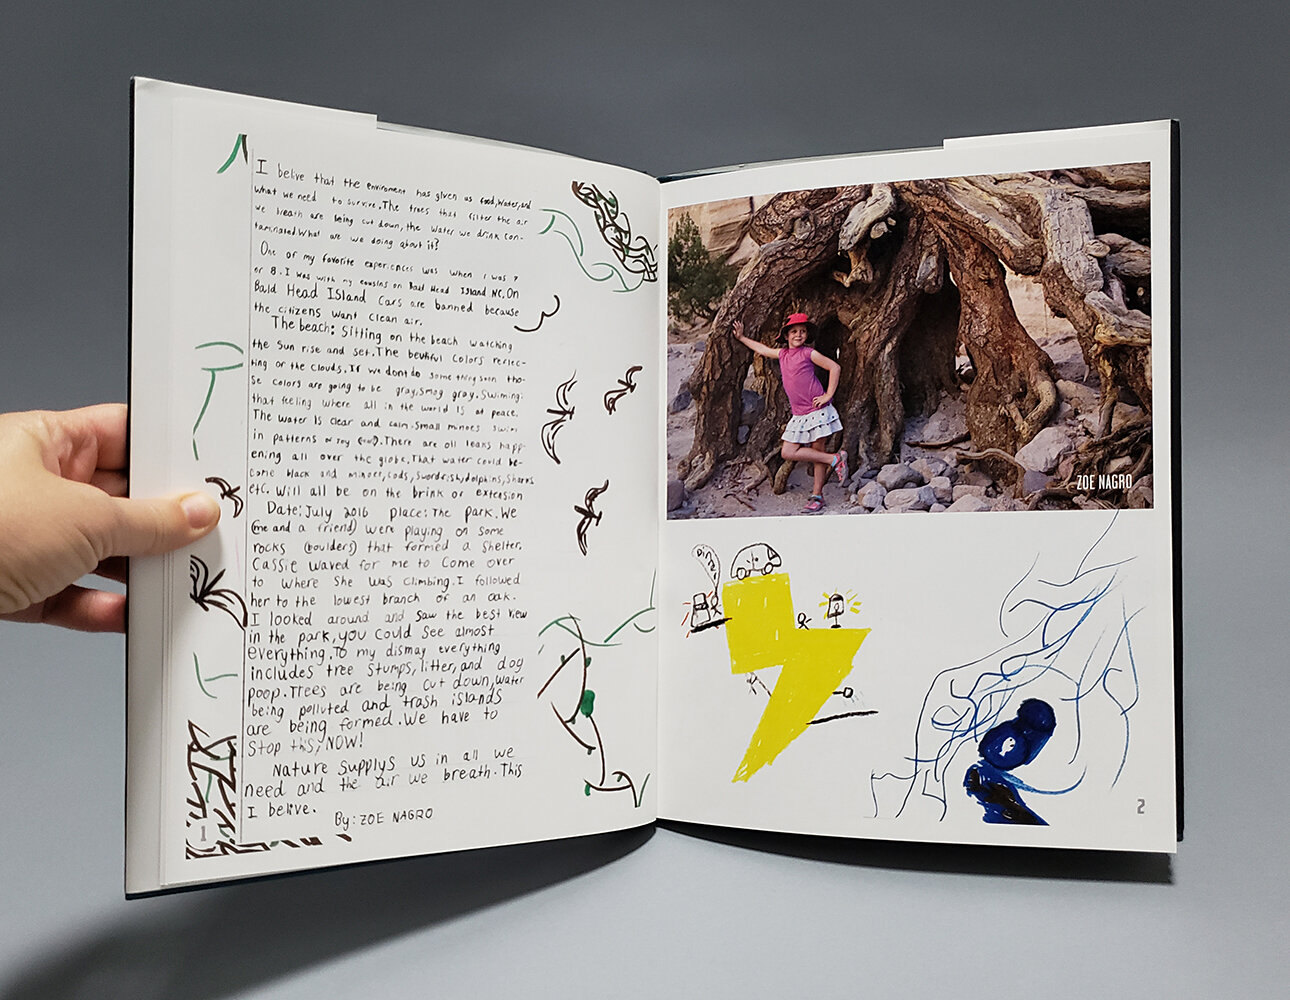 I belive that the enviroment has given us food, water, and
what we need to survive. The trees that filter the air
we breath are being cut down, the water we drink con-
taminated. What are we doing about it?
One of my favorite experiences was when I was 7
or 8. I was with my cousins on Bald Head Island NC. On
Bald Head Island Cars are banned because
the citizens want clean air.
The beach: Sitting on the beach watching
the Sun rise and set. The beutiful colors reflec-
ting of the clouds. If we dont do something soon tho-
se colors are going to be gray, smog gray. Swiming:
that feeling where all in the world is at peace.
The water is clear and calm. Small minoes swim
in patterns of may
There are oil leaks happ-
ening all over the globe. That water could be-
come black and minoes, cods, swordfish, dolphins, sharks
etc. will all be on the brink of extension
Date: July 2016 place: The park. We
(me and a friend) were playing on some
rocks (boulders) that formed a shelter.
Cassie waved for me to come over
to where she was climbing. I followed
her to the lowest branch of an oak.
I looked around and saw the best view
in the park, you could see almost
everything. To my dismay everything
includes tree stumps, litter, and dog
poop. Trees are being cut down, water
being polluted and trash islands
are being formed. We have to
stop this, NOW!
Nature supplys us in all we
need and the air we breath. This
I belive.
By: ZOE NAGRO
1
ZOE NAGRO
2